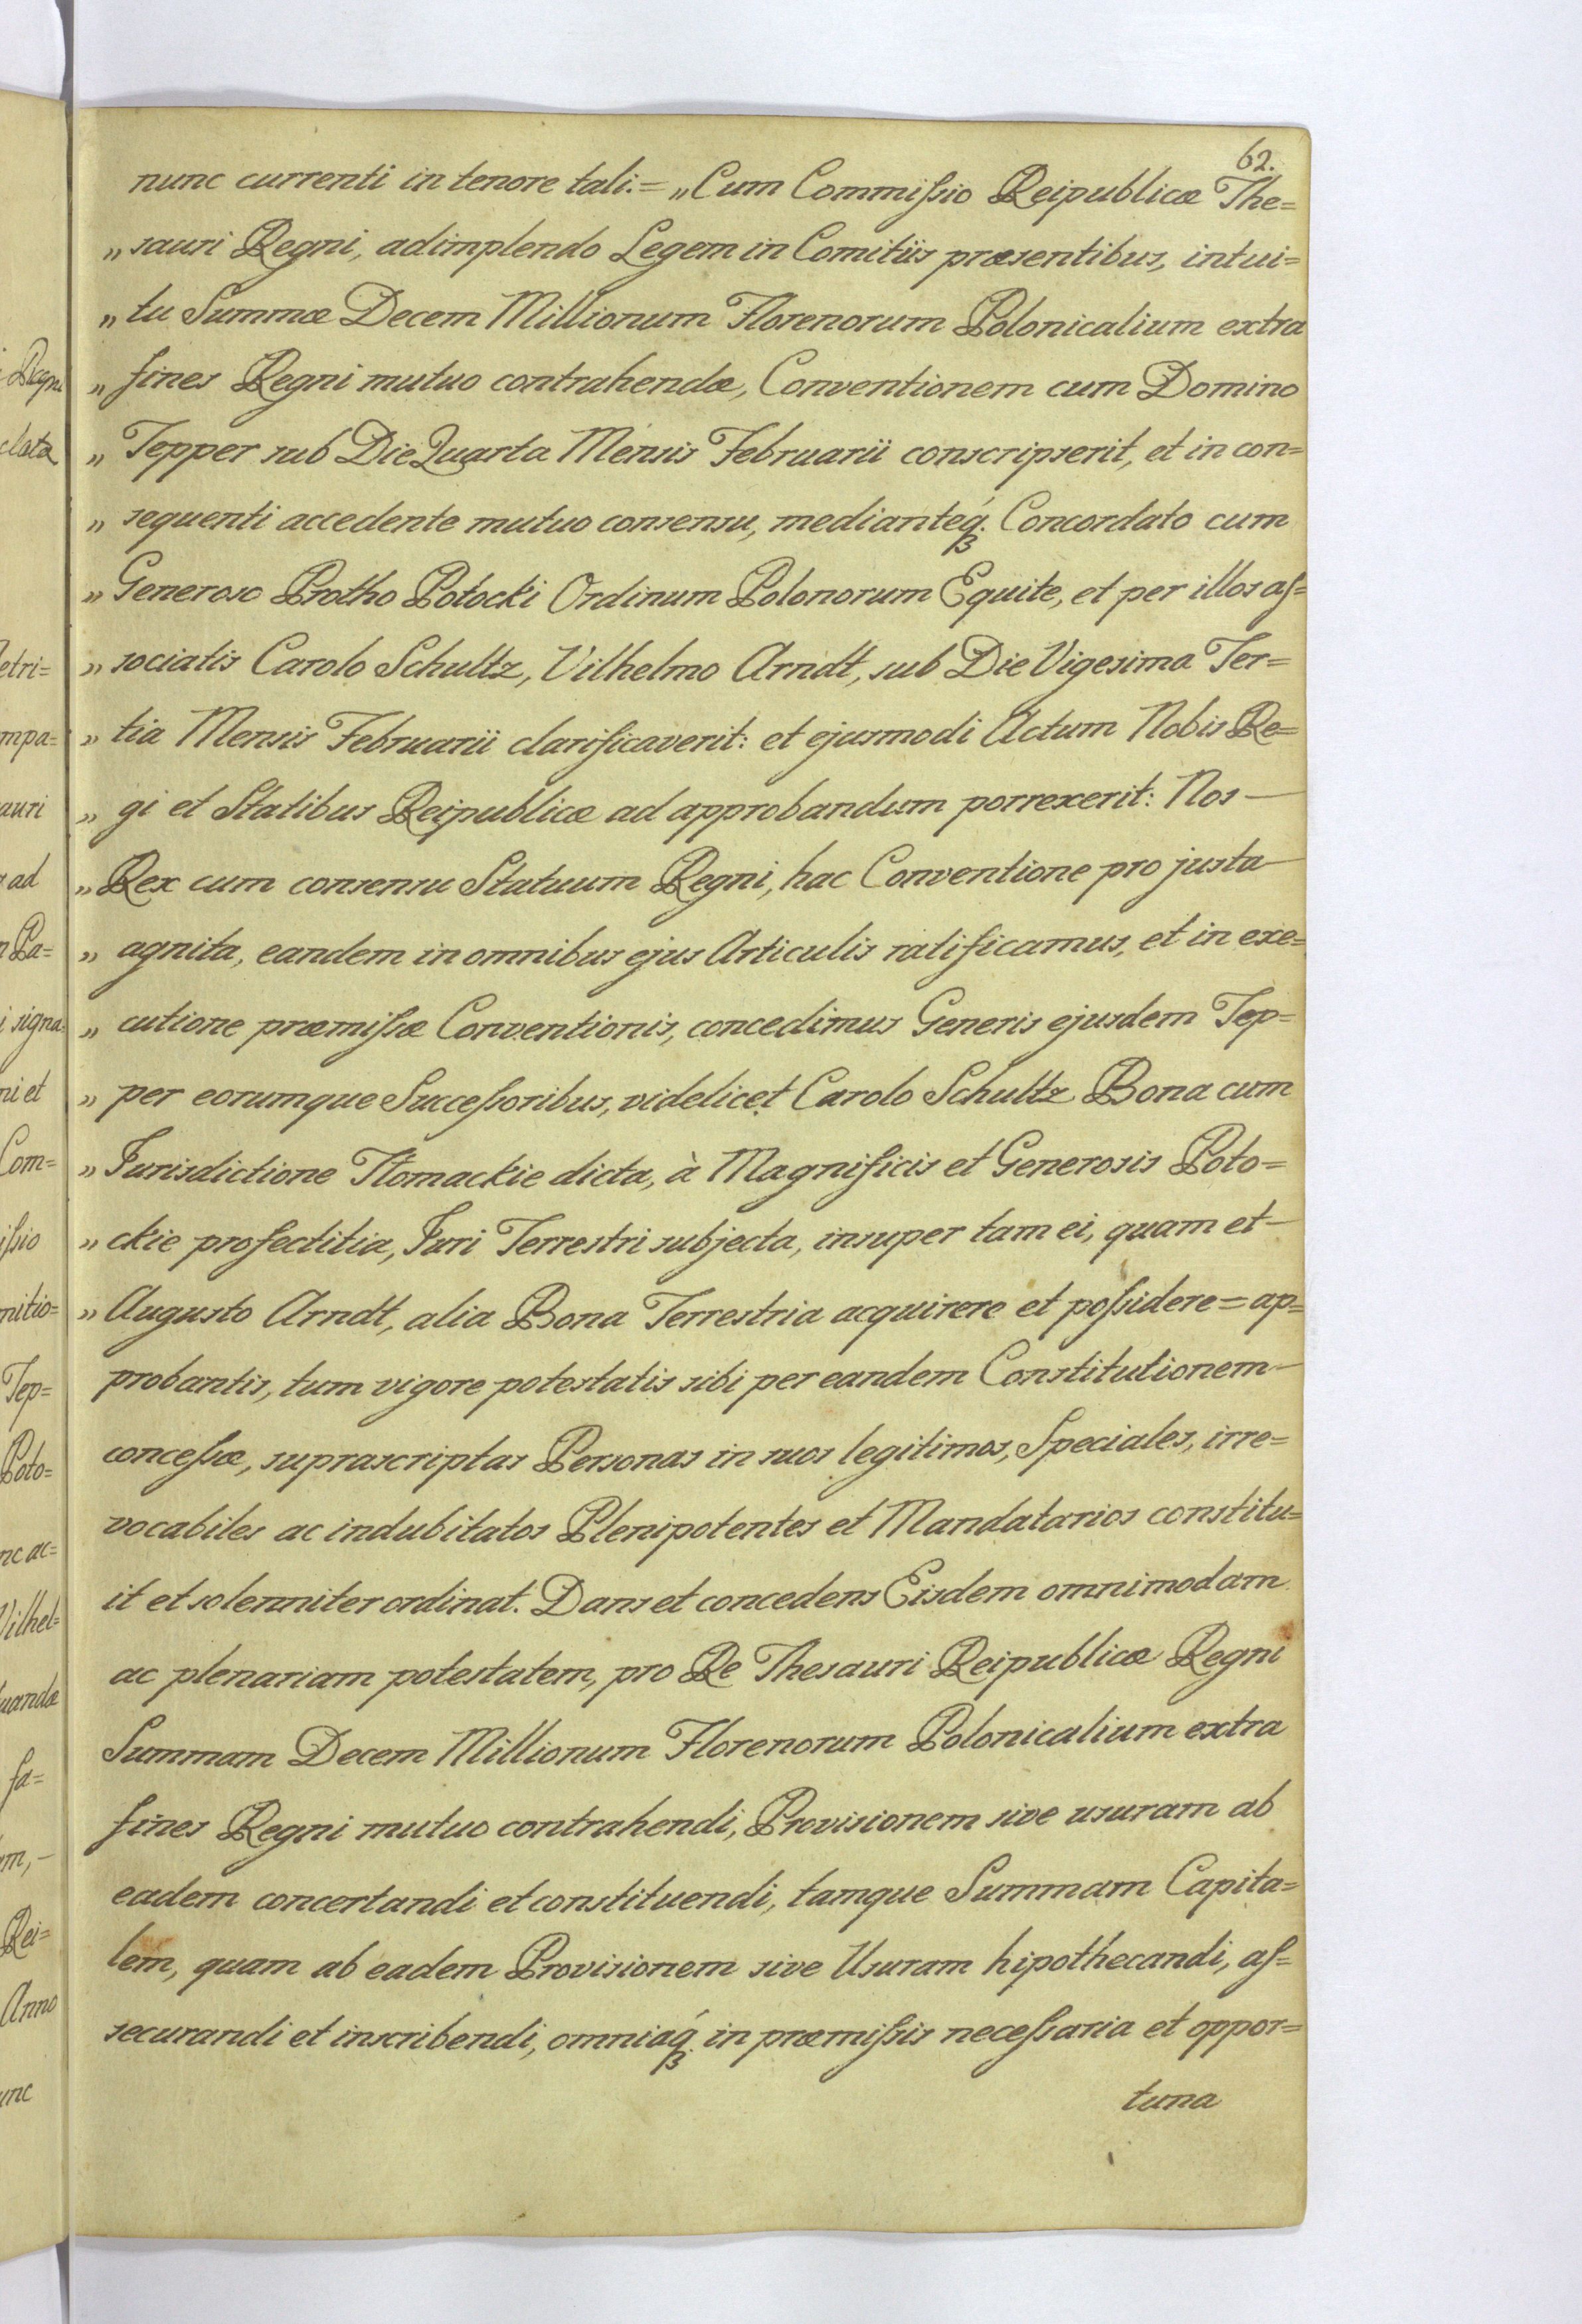 62.
nunc currenti in tenore tali.= „Cum Commiſsio Reipublicæ The=
„sauri Regni, adimplendo Legem in Comitiis præsentibus, intui=
„tu Summæ Decem Millionum Florenorum Polonicalium extra
„fines Regni mutuo contrahendæ, Conventionem cum Domino
„Tepper sub Die Quarta Mensis Februarii conscripserit, et in con=
„sequenti accedente mutuo consensu, medianteq́ꝫ. Concordato cum
„Generoso Protho Potocki Ordinum Polonorum Equite, et per illos aſ=
„sociatis Carolo Schultz, Vilhelmo Arndt, sub Die Vigesima Ter=
„tia Mensis Februarii clarificaverit: et ejusmodi Actum Nobis Re=
„gi et Statibus Reipublicæ ad approbandum porrexerit: Nos —
„Rex cum consensu Statuum Regni, hac Conventione pro justa —
„agnita, eandem in omnibus ejus Articulis ratificamus, et in exe=
„cutione præmiſsæ Conventionis, concedimus Generis ejusdem Tep=
„per eorumque Succeſsoribus, videlicet Carolo Schultz Bona cum
„Jurisdictione Tłomackie dicta, à Magnificis et Generosis Poto=
„ckie profectitia, Juri Terrestri subjecta, insuper tam ei, quam et —
„Augusto Arndt, alia Bona Terrestria acquirere et poſsidere = ap=
probantis, tum vigore potestatis sibi per eandem Constitutionem —
conceſsæ, suprascriptas Personas in suos legitimos, Speciales, irre=
vocabiles ac indubitatos Plenipotentes et Mandatarios constitu=
it et solenniter ordinat. Dans et concedens Eisdem omnimodam
ac plenariam potestatem, pro Re Thesauri Reipublicæ Regni
Summam Decem Millionum Florenorum Polonicalium extra
fines Regni mutuo contrahendi, Provisionem sive usuram ab
eadem concertandi et constituendi, tamque Summam Capita=
lem, quam ab eadem Provisionem sive Usuram hipothecandi, aſ=
securandi et inscribendi, omniaq́ꝫ. in præmiſsis neceſsaria et oppor=
tuna